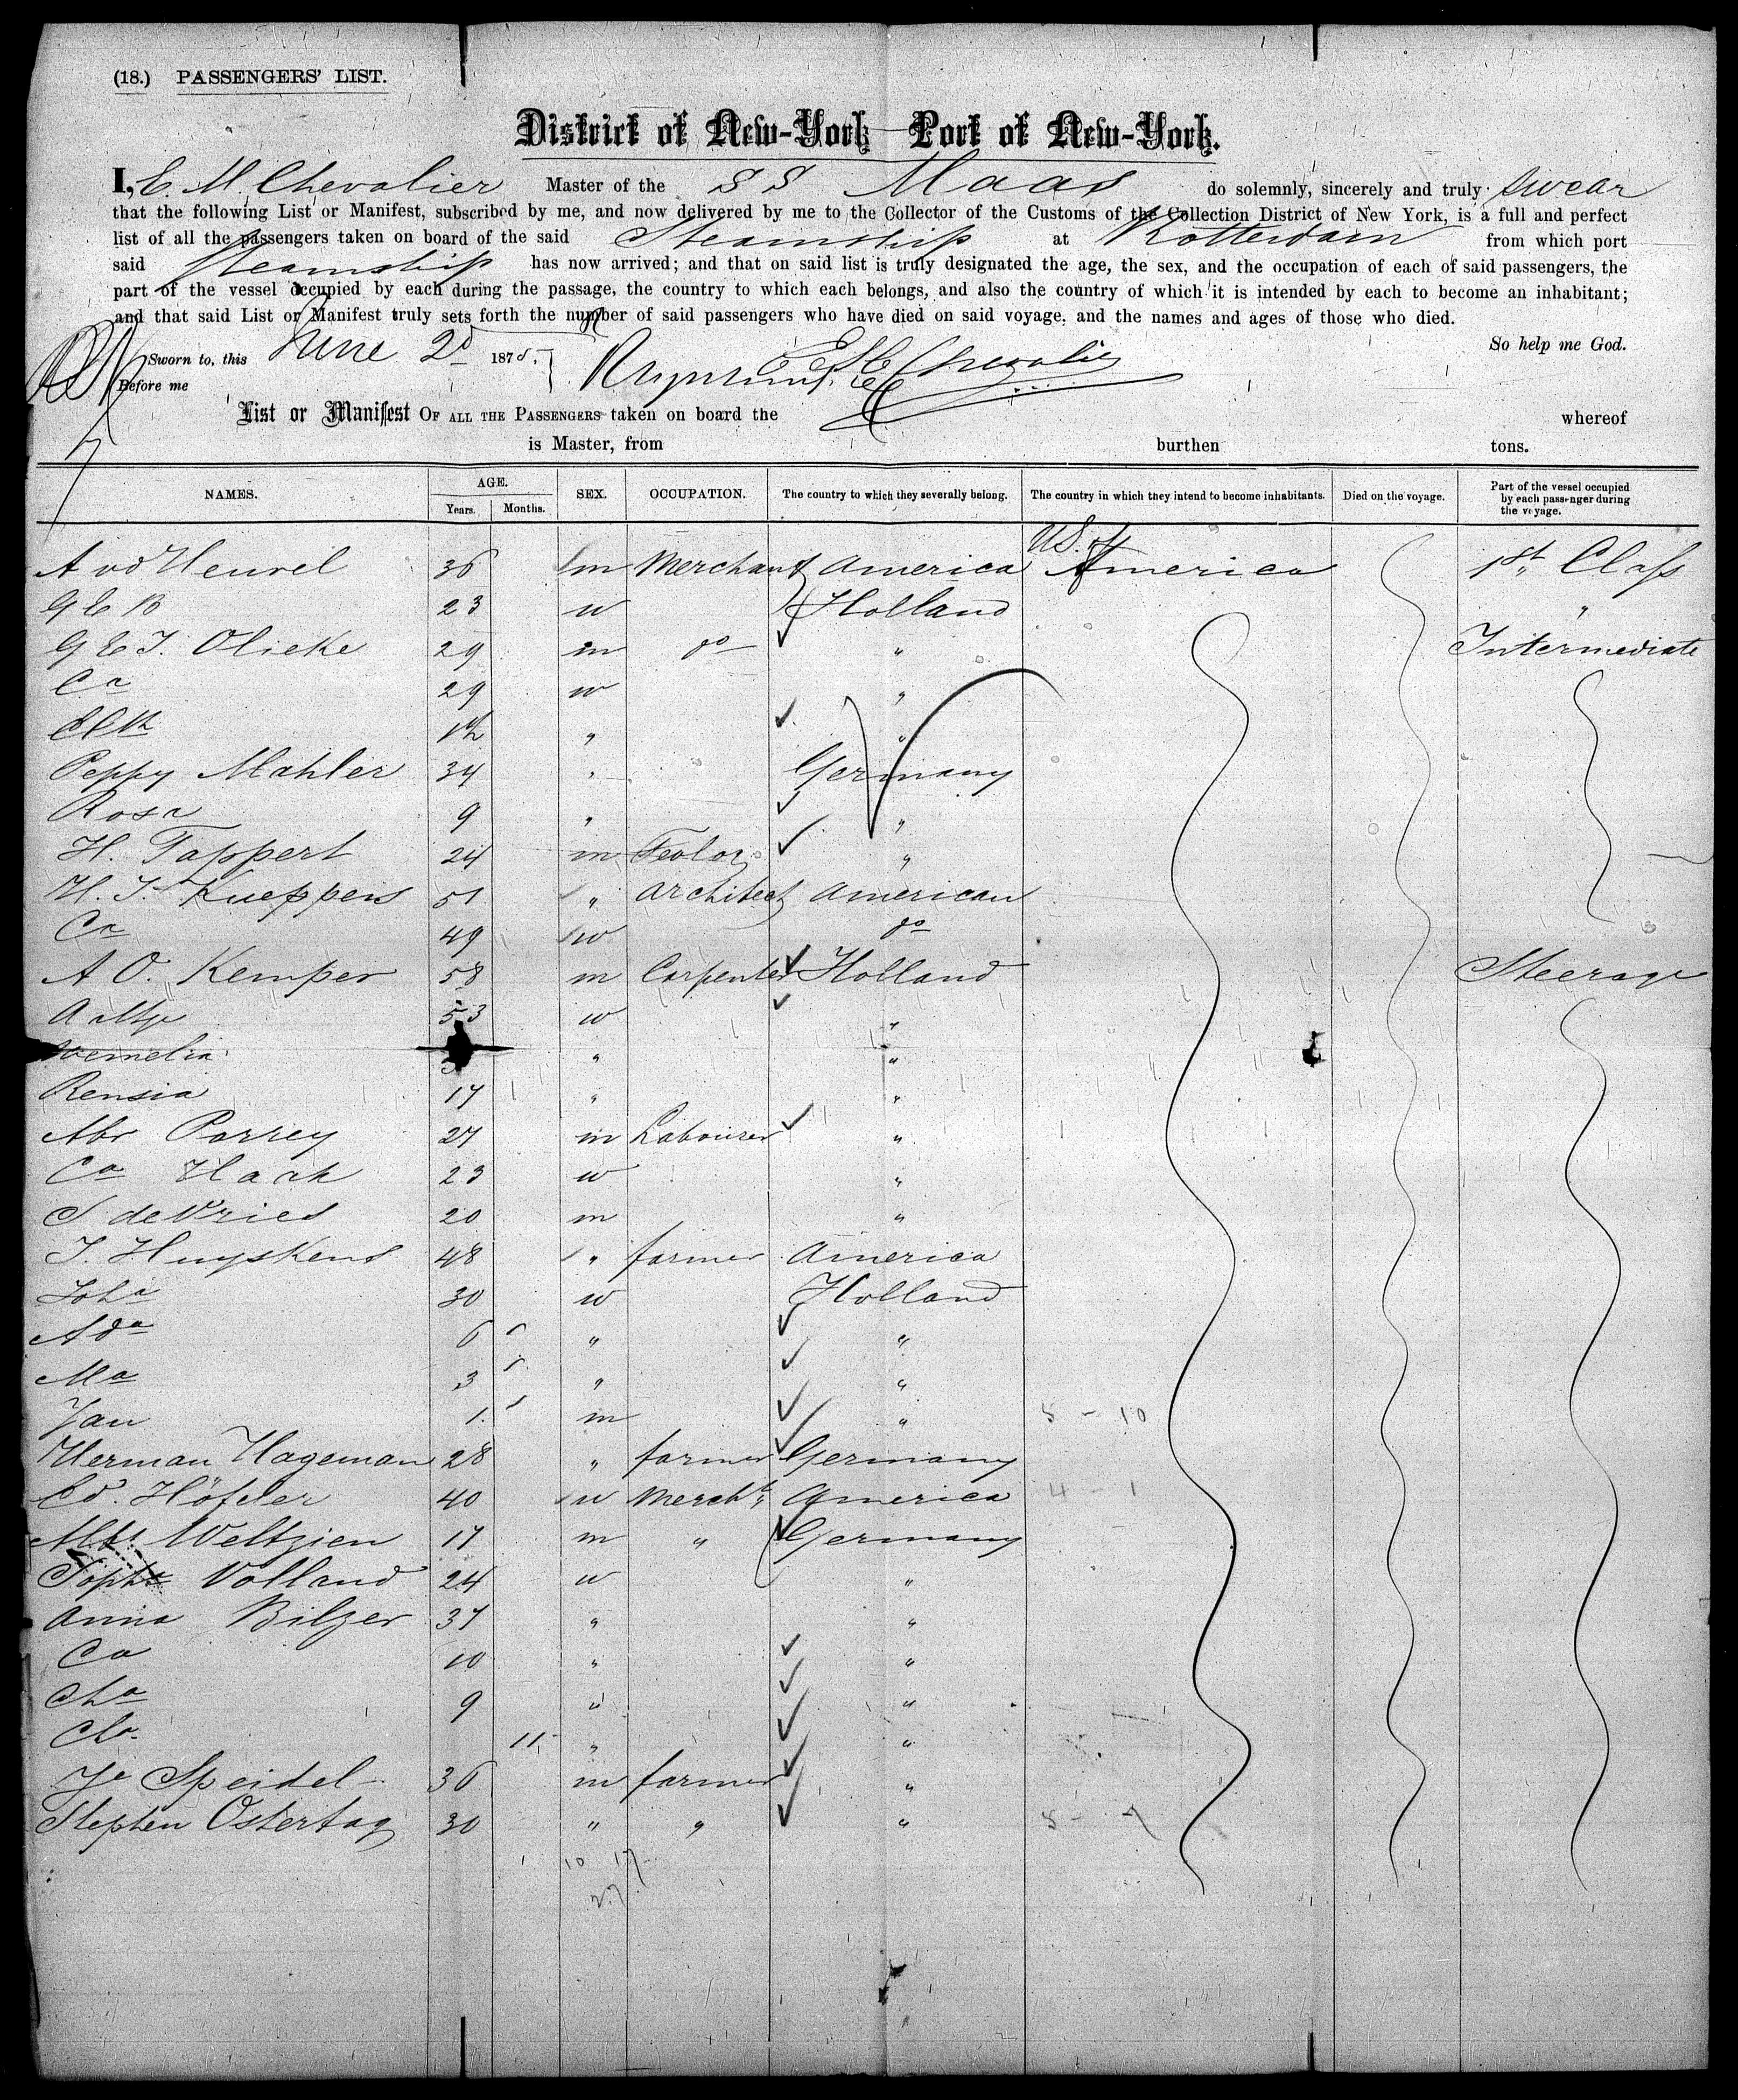 (18.) PASSENGERS' LIST.
District of New-York Port of New-York.
I, E. M. Chevalier Master of the SS Maas do solemnly, sincerely and truly swear
that the following List or Manifest, subscribed by me, and now delivered by me to the Collector of the Customs of the Collection District of New York, is a full and perfect
list of all the passengers taken on board of the said Steamship at Rotterdam from which port
said Steamship has now arrived; and that on said list is truly designated the age, the sex, and the occupation of each of said passengers, the
part of the vessel occupied by each during the passage, the country to which each belongs, and also the country of which it is intended by each to become an inhabitant;
and that said List or Manifest truly sets forth the number of said passengers who have died on said voyage, and the names and ages of those who died.
So help me God.
Sworn to, this June 2d 187
Before me
E. M. Chevalier
List or Manifest OF ALL THE PASSENGERS taken on board the whereof
is Master, from burthen tons.
NAMES. AGE. Years. Months. SEX. OCCUPATION. The country to which they severally belong. The country in which they intend to become inhabitants. Died on the voyage. Part of the vessel occupied by each passenger during the voyage.
A vd Heuvel 36 m Merchant America U.S. of America 1st Class
G E B 23 w Holland "
G E J. Olieke 29 m do " Intermediate
Ca 29 w "
" "
Peppy Mahler 34 " Germany
Rosa 9 " "
H. Tappert 24 m Teolog "
H. J. Kueppers 51 " Architect American
Ca 49 w do
A O. Kemper 58 m Carpenter Holland Steerage
Aaltje 53 w "
" "
Rensia 17 " "
Abr Parrey 27 m Labourer "
Ca Haak 23 w "
S de Vries 20 m "
J. Huyskens 48 " farmer America
Joha 30 w Holland
Ada 6 " "
Ma 3 " "
Jan 1 m " 5 - 10
Herman Hageman 28 " farmer Germany
Ed. Höfeler 40 w Mercht America 4 - 1
Alb. Weltzien 17 m " Germany
Soph. Volland 24 w "
Anna Bilger 37 " "
Ca 10 " "
Cha 9 " "
Clr. 11 " "
Je Speidel 36 m farmer "
Stephen Ostertag 30 " " " 5 - 7
10 17
27